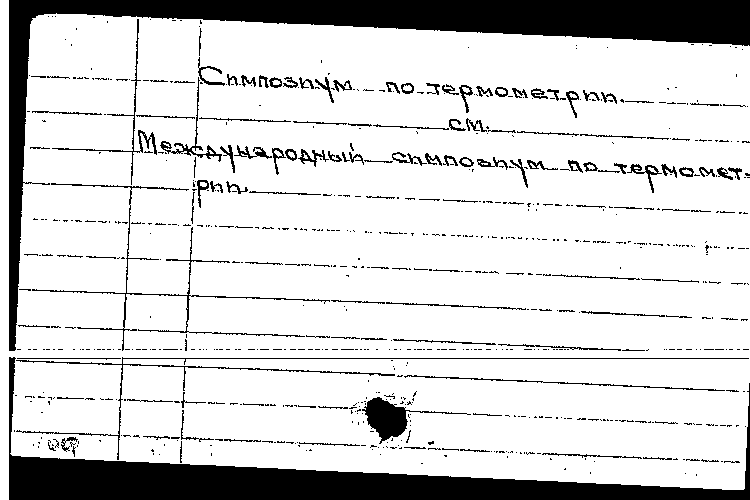 Симпозиум по термометрии.
см.
Международный симпозиум по термомет-
рии.